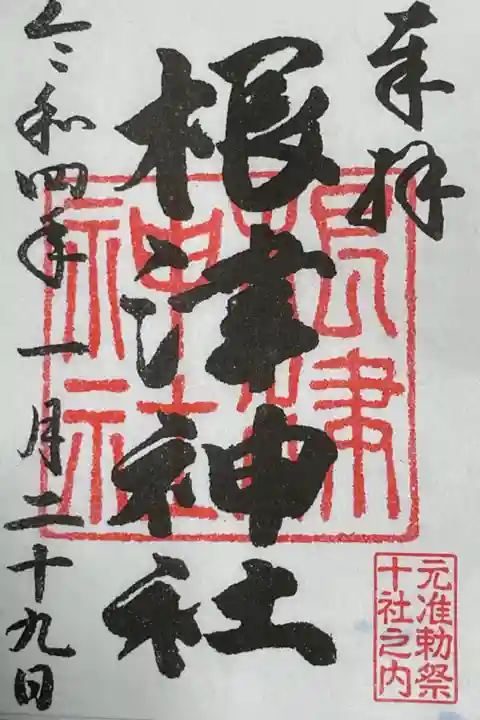 奉拝
根津神社
根津神社
令和四年一月二十九日
元准勅祭
十社之内